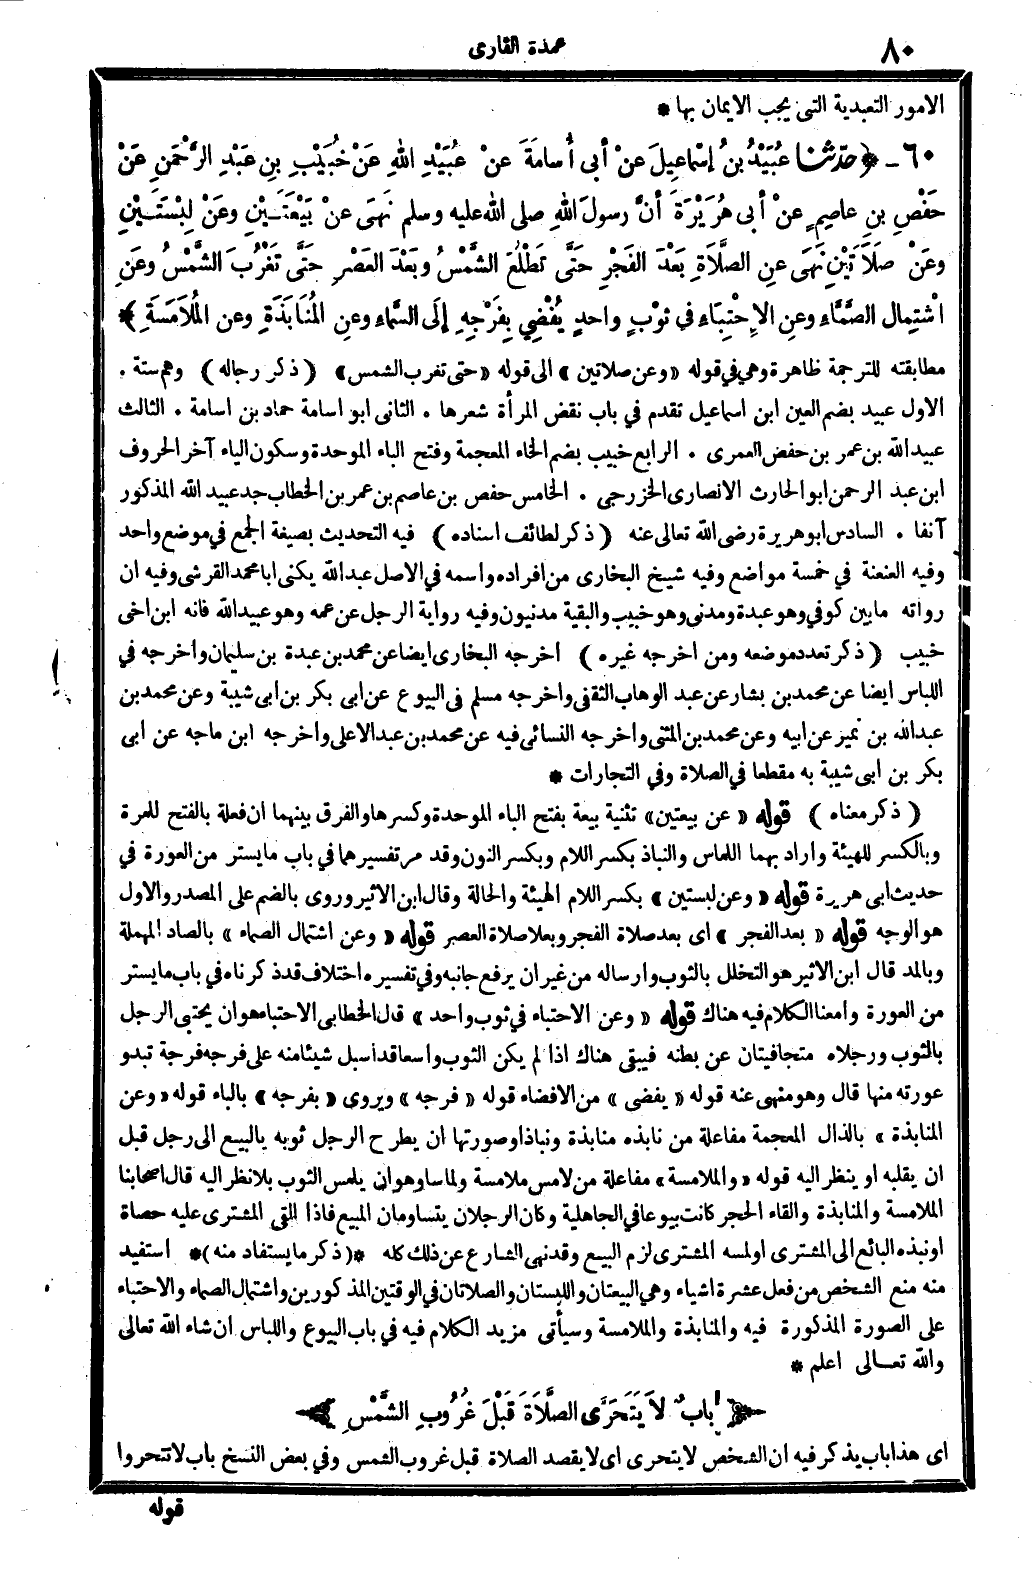 ٨٠
عمدة القارى
الامور التعبدية التى يجب الايمان بها *
٦٠ - ﴿ حَدَّثَنَا عُبَيْدُ بنُ إسْمَاعِيلَ عنْ أبى أُسامةَ عنْ عُبَيْدِ اللهِ عَنْ خُبَيْبِ بنِ عَبْدِ الرَّحْمَنِ عَنْ
حَفْصِ بنِ عاصِمٍ عنْ أبى هُرَيْرَةَ أنَّ رسولَ اللهِ صلى الله عليه وسلم نَهَى عنْ بَيْعَتَيْنِ وعَنْ لِبْسَتَيْنِ
وعَنْ صَلَاتَيْنِ نَهَى عنِ الصَّلَاةِ بَعْدَ الفَجْرِ حَتَّى تَطْلُعَ الشَّمْسُ وبَعْدَ العَصْرِ حَتَّى تَغْرُبَ الشَّمْسُ وعَنِ
اشْتِمالِ الصَّمَّاءِ وعنِ الإِحْتِبَاءِ فى ثَوْبٍ واحدٍ يُفْضِي بِفَرْجِهِ إلَى السَّماءِ وعنِ المُنَابَذَةِ وعنِ المُلَامَسَةِ ﴾
مطابقته للترجمة ظاهرة وهى فى قوله «وعن صلاتين» الى قوله «حتى تغرب الشمس» ( ذكر رجاله ) وهم ستة .
الاول عبيد بضم العين ابن اسماعيل تقدم في باب نقض المرأة شعرها . الثانى ابو اسامة حماد بن اسامة . الثالث
عبيد الله بن عمر بن حفص العمرى . الرابع خبيب بضم الخاء المعجمة وفتح الباء الموحدة وسكون الياء آخر الحروف
ابن عبد الرحمن ابو الحارث الانصارى الخزرجى . الخامس حفص بن عاصم بن عمر بن الخطاب جد عبيد الله المذكور
آنفا . السادس ابو هريرة رضى الله تعالى عنه ( ذكر لطائف اسناده ) فيه التحديث بصيغة الجمع في موضع واحد
وفيه العنعنة في خمسة مواضع وفيه شيخ البخارى من افراده واسمه في الاصل عبد الله يكنى ابا محمد القرشى وفيه ان
رواته مابين كوفى وهو عبدة ومدنى وهو خبيب والبقية مدنيون وفيه رواية الرجل عن عمه وهو عبيد الله فانه ابن اخى
خبيب ( ذكر تعدد موضعه ومن اخرجه غيره ) اخرجه البخارى ايضا عن محمد بن عبدة بن سليمان واخرجه في
اللباس ايضا عن محمد بن بشار عن عبد الوهاب الثقفى واخرجه مسلم فى البيوع عن ابى بكر بن ابى شيبة وعن محمد بن
عبد الله بن نمير عن ابيه وعن محمد بن المثنى واخرجه النسائى فيه عن محمد بن عبد الاعلى واخرجه ابن ماجه عن ابى
بكر بن ابى شيبة به مقطعا في الصلاة وفي التجارات *
( ذكر معناه ) قوله « عن بيعتين» تثنية بيعة بفتح الباء الموحدة وكسرها والفرق بينهما ان فعلة بالفتح للمرة
وبالكسر للهيئة واراد بهما اللماس والنباذ بكسر اللام وبكسر النون وقد مر تفسيرهما في باب مايستر من العورة في
حديث ابى هريرة قوله « وعن لبستين » بكسر اللام الهيئة والحالة وقال ابن الاثير وروى بالضم على المصدر والاول
هو الوجه قوله « بعد الفجر » اى بعد صلاة الفجر وبعد صلاة العصر قوله « وعن اشتمال الصماء » بالصاد المهملة
وبالمد قال ابن الاثير هو التخلل بالثوب وارساله من غير ان يرفع جانبه وفي تفسيره اختلاف قد ذكرناه في باب مايستر
من العورة وامعنا الكلام فيه هناك قوله « وعن الاحتباء في ثوب واحد » قال الخطابى الاحتباء هو ان يحتبى الرجل
بالثوب ورجلاه متجافيتان عن بطنه فيبقى هناك اذا لم يكن الثوب واسعا قد اسبل شيئا منه على فرجه فرجة تبدو
عورته منها قال وهو منهى عنه قوله « يفضى » من الافضاء قوله « فرجه » ويروى « بفرجه » بالباء قوله «وعن
المنابذة » بالذال المعجمة مفاعلة من نابذه منابذة ونباذا وصورتها ان يطرح الرجل ثوبه بالبيع الى رجل قبل
ان يقلبه او ينظر اليه قوله «والملامسة» مفاعلة من لامس ملامسة ولماسا وهو ان يلمس الثوب بلا نظر اليه قال اصحابنا
الملامسة والمنابذة والقاء الحجر كانت بيوعا في الجاهلية وكان الرجلان يتساومان المبيع فاذا القى المشترى عليه حصاة
او نبذه البائع الى المشترى او لمسه المشترى لزم البيع وقد نهى الشارع عن ذلك كله *( ذكر ما يستفاد منه)* استفيد
منه منع الشخص من فعل عشرة اشياء وهي البيعتان واللبستان والصلاتان في الوقتين المذكورين واشتمال الصماء والاحتباء
على الصورة المذكورة فيه والمنابذة والملامسة وسيأتى مزيد الكلام فيه في باب البيوع واللباس ان شاء الله تعالى
والله تعالى اعلم *
بابٌ لاَ يَتَحَرَّى الصَّلَاةَ قَبْلَ غُرُوبِ الشَّمْسِ
اى هذا باب يذكر فيه ان الشخص لا يتحرى اى لا يقصد الصلاة قبل غروب الشمس وفي بعض النسخ باب لا تتحروا
قوله